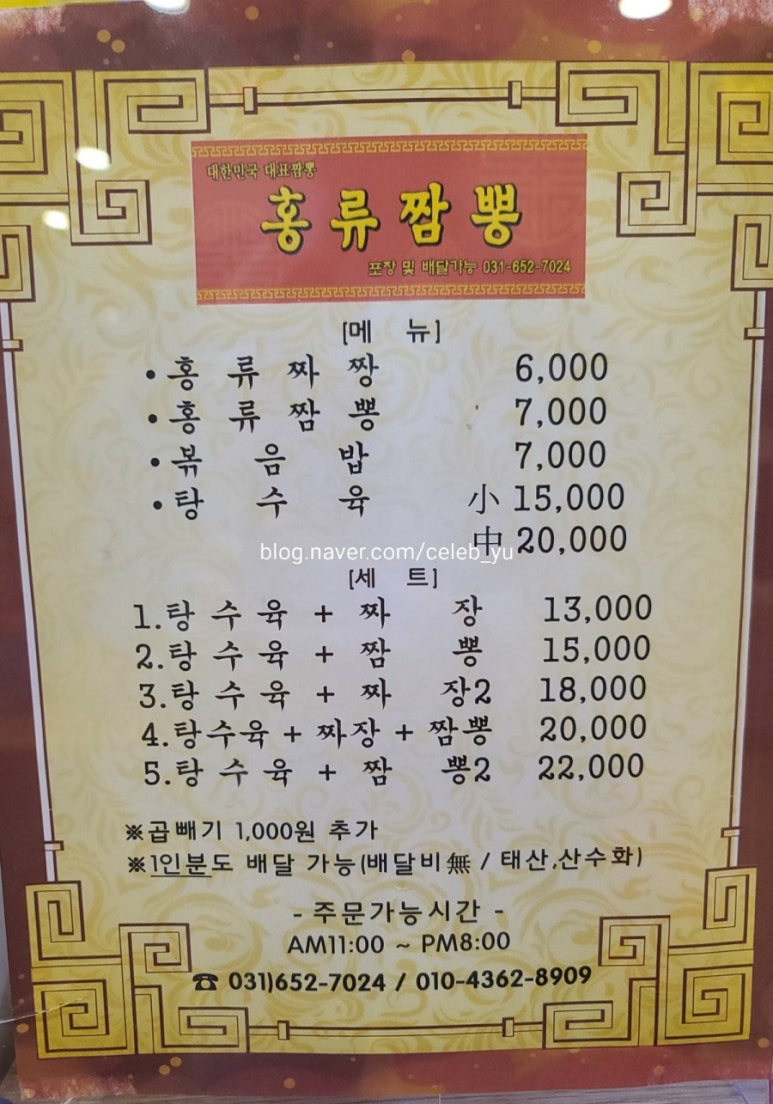 대한민국 대표짬뽕
홍류짬뽕
포장 및 배달가능 031-652-7024
[메 뉴]
• 홍 류 짜 짱 6,000
• 홍 류 짬 뽕 7,000
• 볶 음 밥 7,000
• 탕 수 육 小 15,000
中 20,000
blog.naver.com/celeb_yu
[세 트]
1.탕 수 육 + 짜 장 13,000
2.탕 수 육 + 짬 뽕 15,000
3.탕 수 육 + 짜 장2 18,000
4.탕수육 + 짜장 + 짬뽕 20,000
5.탕 수 육 + 짬 뽕2 22,000
※곱빼기 1,000원 추가
※1인분도 배달 가능(배달비無 / 태산,산수화)
- 주문가능시간 -
AM11:00 ~ PM8:00
☎ 031)652-7024 / 010-4362-8909